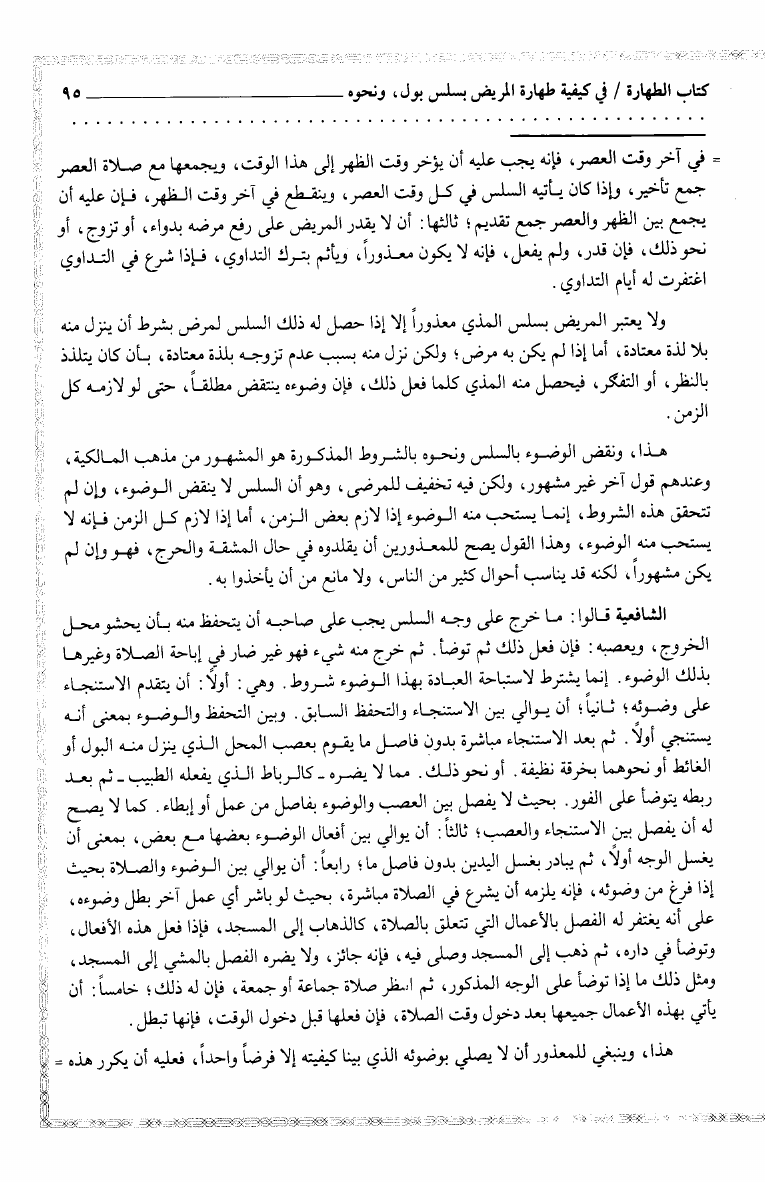 كتاب الطهارة / في كيفية طهارة المريض بسلس بول، ونحوه ٩٥
= في آخر وقت العصر، فإنه يجب عليه أن يؤخر وقت الظهر إلى هذا الوقت، ويجمعها مع صلاة العصر
جمع تأخير، وإذا كان يأتيه السلس في كل وقت العصر، وينقطع في آخر وقت الظهر، فإن عليه أن
يجمع بين الظهر والعصر جمع تقديم؛ ثالثها: أن لا يقدر المريض على رفع مرضه بدواء، أو تزوج، أو
نحو ذلك، فإن قدر، ولم يفعل، فإنه لا يكون معذوراً، ويأثم بترك التداوي، فإذا شرع في التداوي
اغتفرت له أيام التداوي.
ولا يعتبر المريض بسلس المذي معذوراً إلا إذا حصل له ذلك السلس لمرض بشرط أن ينزل منه
بلا لذة معتادة، أما إذا لم يكن به مرض؛ ولكن نزل منه بسبب عدم تزوجه بلذة معتادة، بأن كان يتلذذ
بالنظر، أو التفكر، فيحصل منه المذي كلما فعل ذلك، فإن وضوءه ينتقض مطلقاً، حتى لو لازمه كل
الزمن.
هذا، ونقض الوضوء بالسلس ونحوه بالشروط المذكورة هو المشهور من مذهب المالكية،
وعندهم قول آخر غير مشهور، ولكن فيه تخفيف للمرضى، وهو أن السلس لا ينقض الوضوء، وإن لم
تتحقق هذه الشروط، إنما يستحب منه الوضوء إذا لازم بعض الزمن، أما إذا لازم كل الزمن فإنه لا
يستحب منه الوضوء، وهذا القول يصح للمعذورين أن يقلدوه في حال المشقة والحرج، فهو وإن لم
يكن مشهوراً، لكنه قد يناسب أحوال كثير من الناس، ولا مانع من أن يأخذوا به.
الشافعية قالوا: ما خرج على وجه السلس يجب على صاحبه أن يتحفظ منه بأن يحشو محل
الخروج، ويعصبه: فإن فعل ذلك ثم توضأ. ثم خرج منه شيء فهو غير ضار في إباحة الصلاة وغيرها
بذلك الوضوء. إنما يشترط لاستباحة العبادة بهذا الوضوء شروط. وهي: أولاً: أن يتقدم الاستنجاء
على وضوئه؛ ثانياً؛ أن يوالي بين الاستنجاء والتحفظ السابق. وبين التحفظ والوضوء بمعنى أنه
يستنجي أولاً. ثم بعد الاستنجاء مباشرة بدون فاصل ما يقوم بعصب المحل الذي ينزل منه البول أو
الغائط أو نحوهما بخرقة نظيفة. أو نحو ذلك. مما لا يضره - كالرباط الذي يفعله الطبيب - ثم بعد
ربطه يتوضأ على الفور. بحيث لا يفصل بين العصب والوضوء بفاصل من عمل أو إبطاء. كما لا يصح
له أن يفصل بين الاستنجاء والعصب؛ ثالثاً: أن يوالي بين أفعال الوضوء بعضها مع بعض، بمعنى أن
يغسل الوجه أولاً، ثم يبادر بغسل اليدين بدون فاصل ما؛ رابعاً: أن يوالي بين الوضوء والصلاة بحيث
إذا فرغ من وضوئه، فإنه يلزمه أن يشرع في الصلاة مباشرة، بحيث لو باشر أي عمل آخر بطل وضوءه،
على أنه يغتفر له الفصل بالأعمال التي تتعلق بالصلاة، كالذهاب إلى المسجد، فإذا فعل هذه الأفعال،
وتوضأ في داره، ثم ذهب إلى المسجد وصلى فيه، فإنه جائز، ولا يضره الفصل بالمشي إلى المسجد،
ومثل ذلك ما إذا توضأ على الوجه المذكور، ثم انتظر صلاة جماعة أو جمعة، فإن له ذلك؛ خامساً: أن
يأتي بهذه الأعمال جميعها بعد دخول وقت الصلاة، فإن فعلها قبل دخول الوقت، فإنها تبطل.
هذا، وينبغي للمعذور أن لا يصلي بوضوئه الذي بينا كيفيته إلا فرضاً واحداً، فعليه أن يكرر هذه =